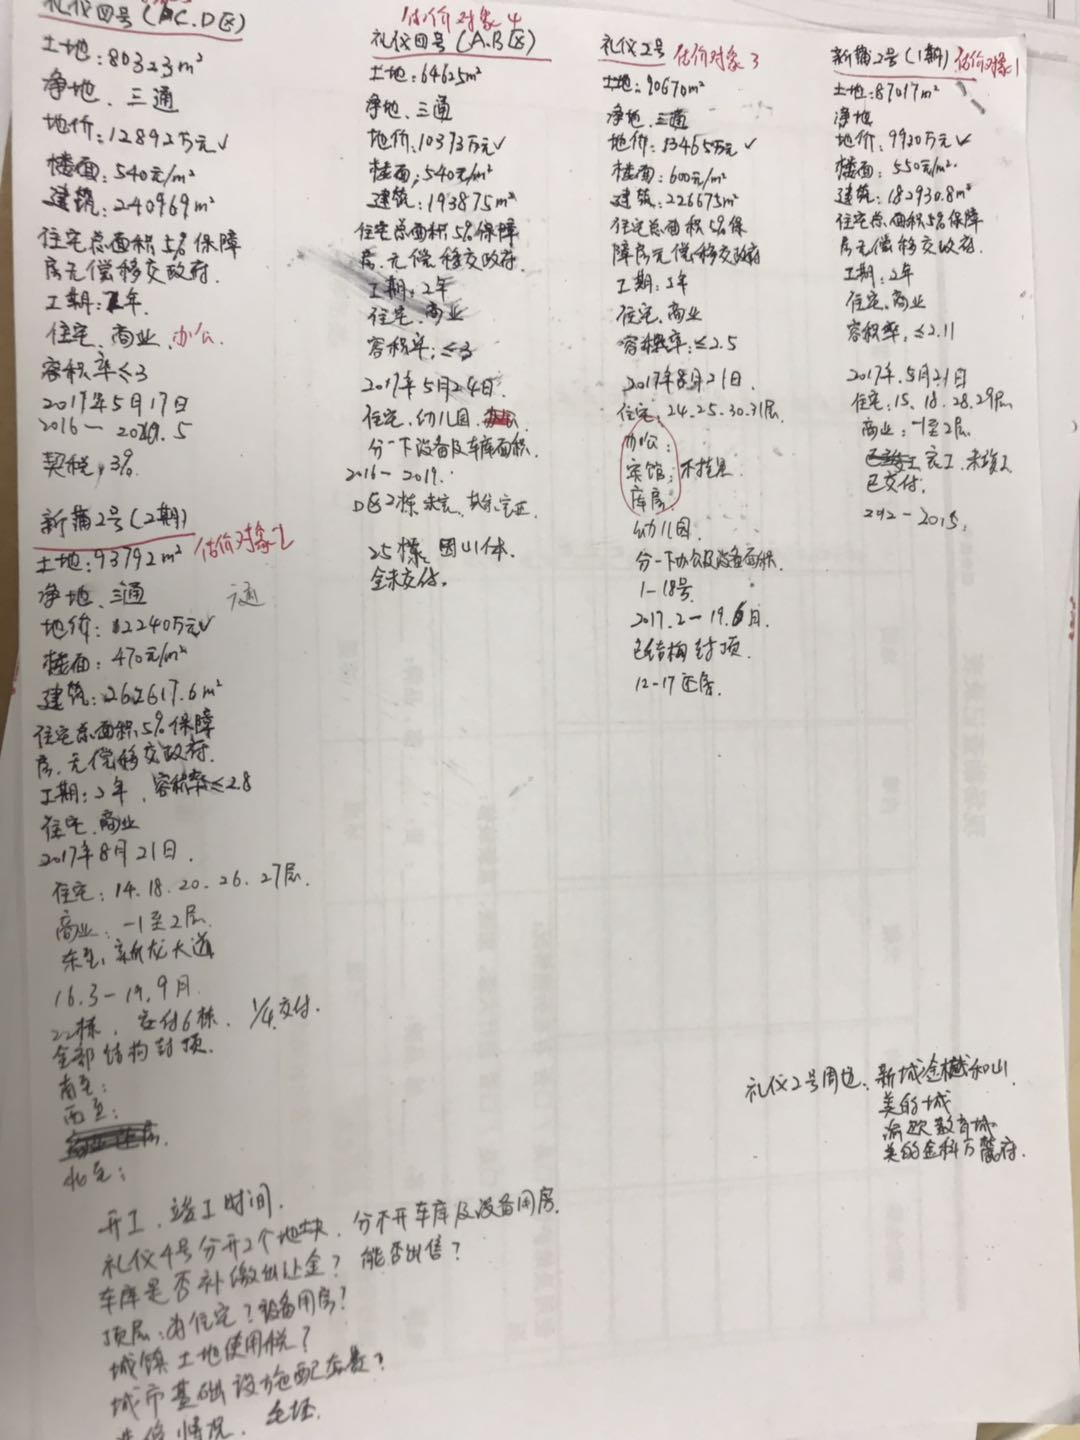 礼仪四号(AC.D区)
土地:80323m²
净地、三通
地价:12892万元✓
楼面:540元/m²
建筑:240969m²
住宅总面积5%保障
房无偿移交政府.
工期:2年.
住宅、商业、办公.
容积率≤3
2017年5月17日
契税,3%
新蒲2号(2期)
估价对象2
土地:93792m²
净地、三通
地价:12240万元✓
楼面:470元/m²
建筑:262617.6m²
住宅总面积5%保障
房.无偿移交政府.
工期:2年.容积率≤2.8
住宅、商业
2017年8月21日.
住宅:14.18.20.26.27层.
商业:-1至2层.
东至:新龙大道
16.3-19.9月.
22栋.交付6栋.1/4交付.
全部结构封顶.
南至:
西至:
北至:
开工、竣工时间.
礼仪4号分开2个地块.分不开车库及设备用房.
车库是否补缴出让金?能否出售?
顶层:为住宅?设备用房?
城镇土地使用税?
城市基础设施配套费?
装修情况.毛坯.
估价对象4
礼仪四号(A.B区)
土地:64625m²
净地、三通
地价:10373万元✓
楼面:540元/m²
建筑:193875m²
住宅总面积5%保障
房.无偿移交政府.
工期:2年
住宅、商业
容积率:≤3
2017年5月24日.
住宅.幼儿园.
分一下设备及车库面积.
2016-2019.
25栋.
全未交付.
礼仪2号 估价对象3
土地:90670m²
净地.三通
地价:13465万元✓
楼面:600元/m²
建筑:226675m²
住宅总面积5%保
障房无偿移交政府
工期:3年
住宅、商业
容积率:≤2.5
2017年8月21日.
住宅:24.25.30.31层.
办公:
宾馆:
库房:
幼儿园.
分一下办公及设备面积.
1-18号
2017.2-19.6月.
已结构封顶.
12-17还房.
新蒲2号(1期) 估价对象1
土地:87017m²
净地
地价:9920万元✓
楼面:550元/m².
建筑:182930.8m²
住宅总面积5%保障
房无偿移交政府.
工期:2年
住宅、商业
容积率:≤2.11
2017年.5月21日
住宅:15.18.28.29层
商业:-1至2层.
已交付.
礼仪2号周边:新城金樾和山
美的城
美的金科万麓府.